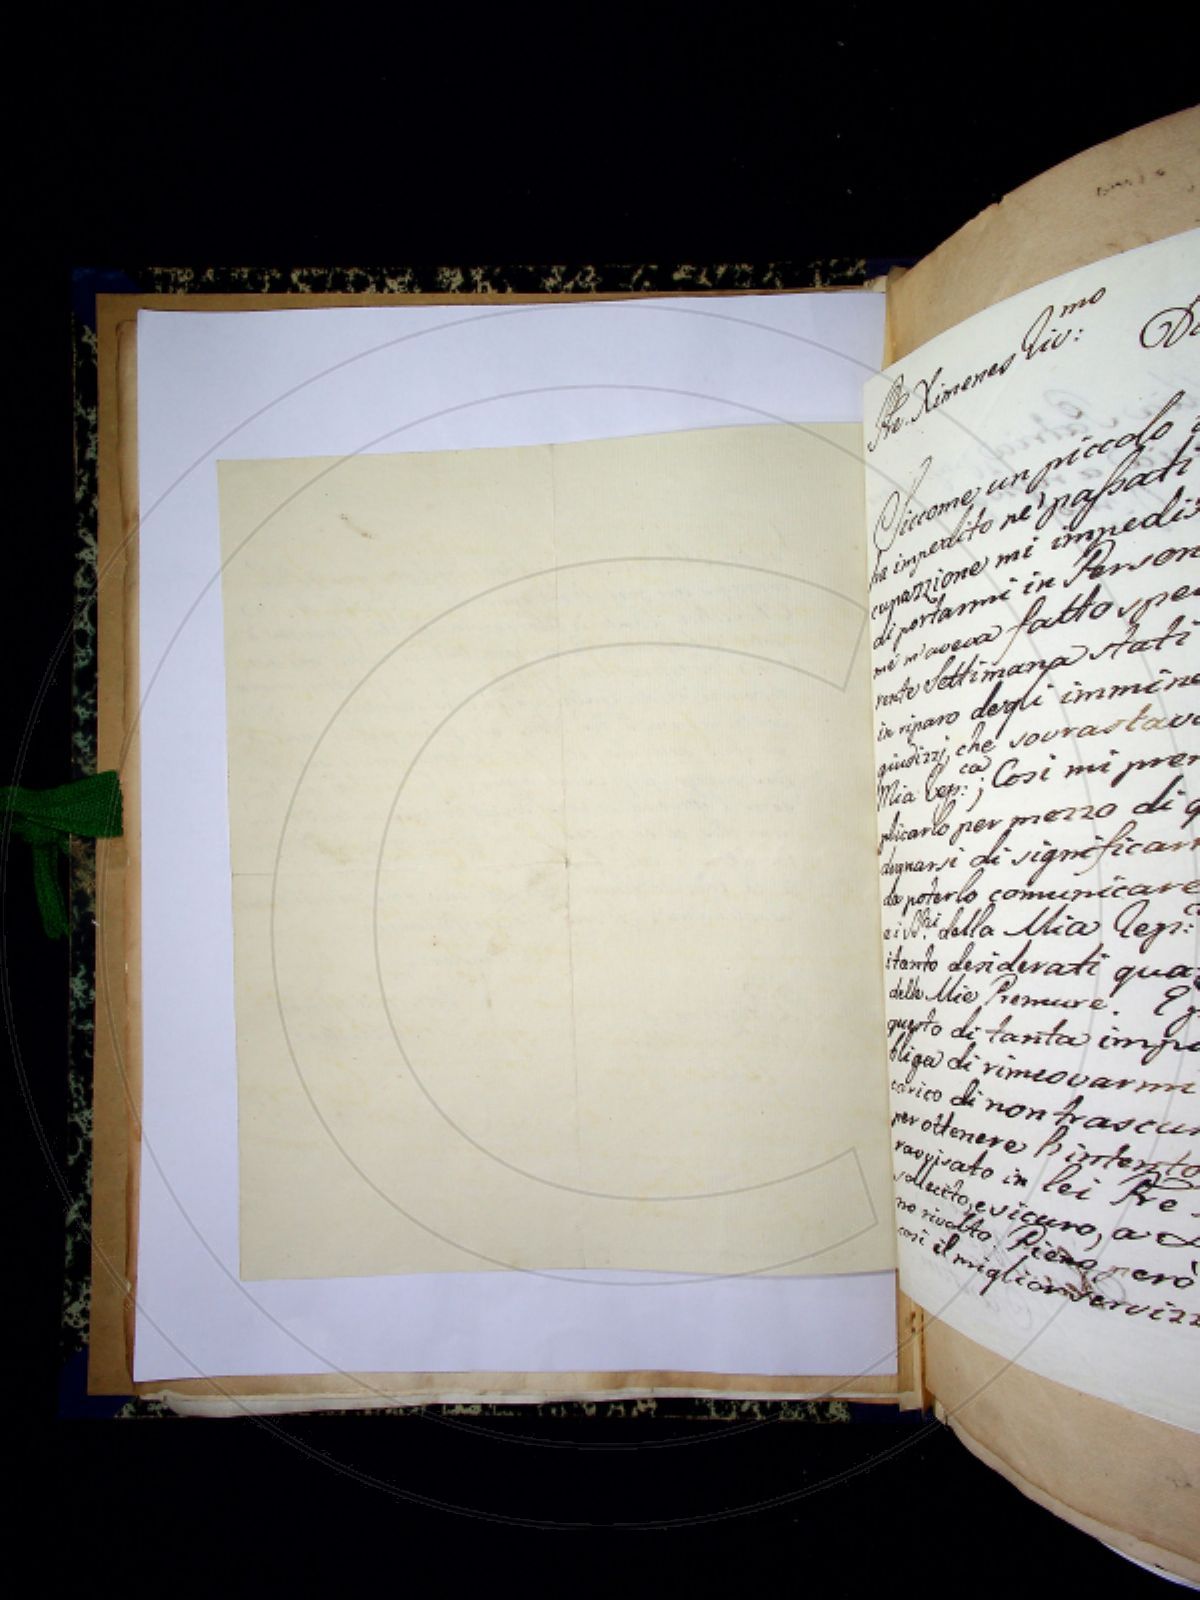 Pre. Ximenes Riv:mo
Siccome un piccolo
ha impedito ne' passati
cupazzione mi impedis
di portarmi in Person
mi m'aveva fatto sper
rente Settimana stati
in riparo degli immine
giudizzj, che sovrastava
Mia Rep:ca; Così mi prer
plicarlo per mezzo di q
degnarsi di significarr
da poterlo comunicare
ei SS.ri della Mia Rep:c
itanto desiderati qua
delle Mie Premure. Eg
questo di tanta impo
bliga di rinovarmi
carico di non trascur
per ottenere l'intento
ravvisato in lei Pre
sollecito, e sicuro, a
no rivolto. Pieno però
così il miglior servizz